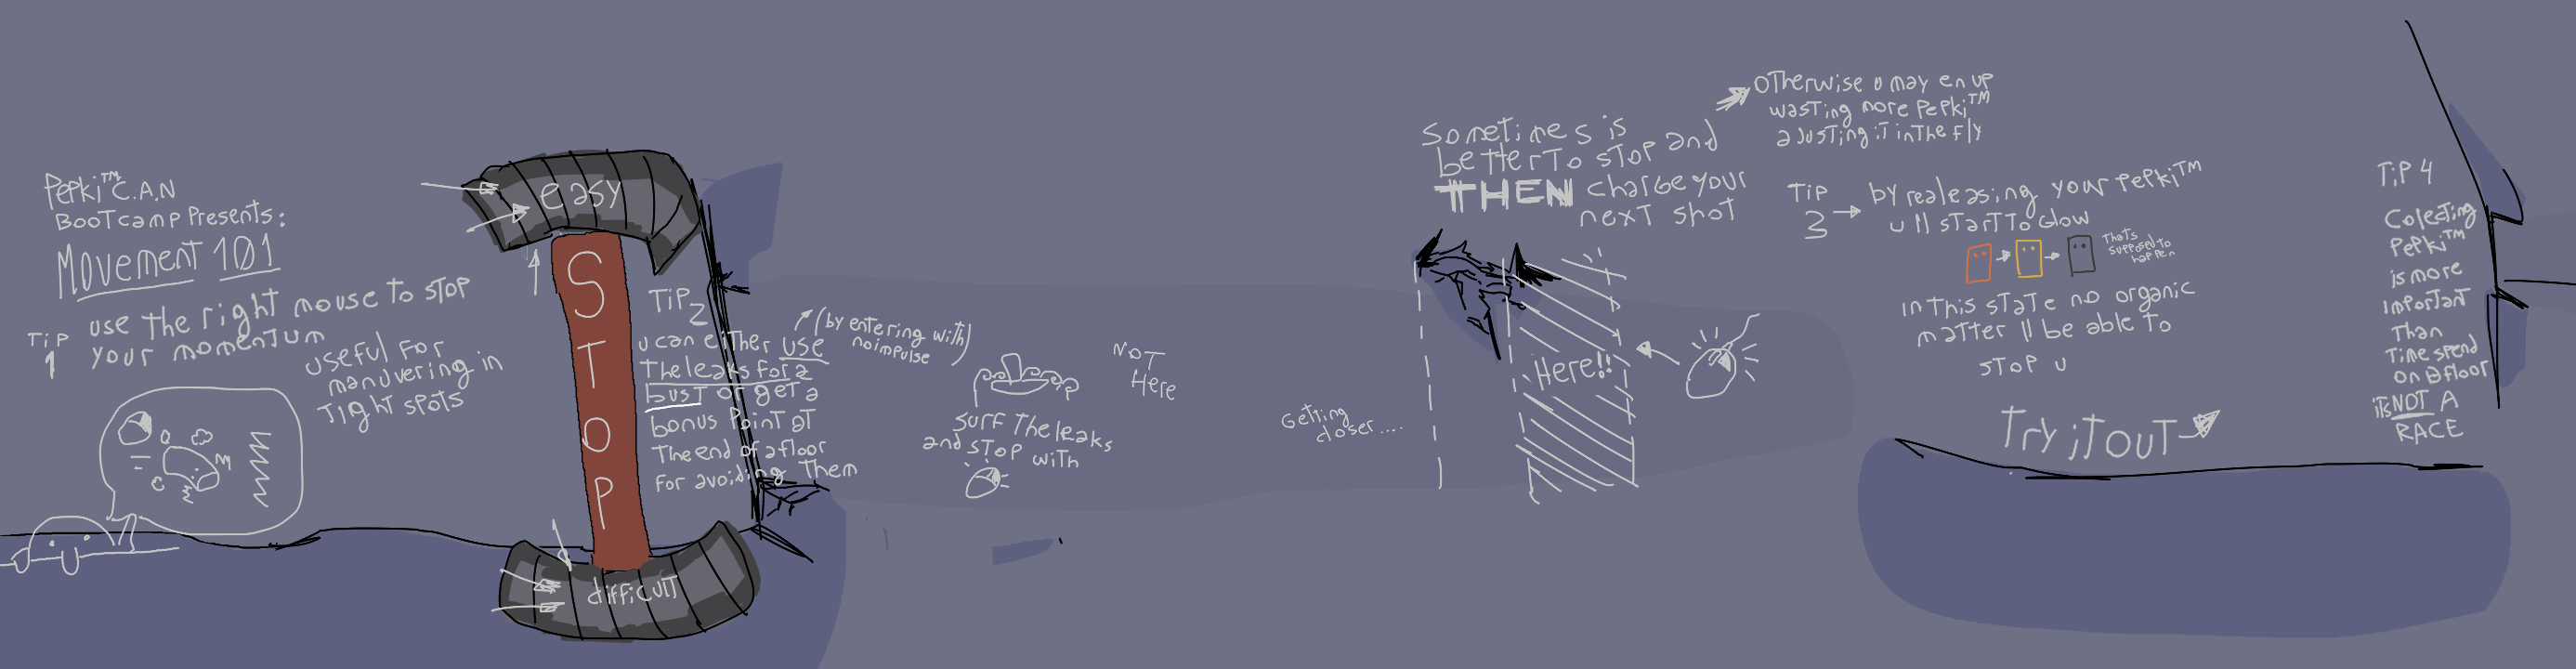 PePki™ C.A.N
BOOTcamp Presents:
Movement 101
TiP
1
use the right mouse to STOP
your momentum
useful for
manuvering in
TighT spots
easy
STOP
difficulT
TiP
2
u can either use
The leaks for a
bust or get a
bonus Point at
The end of a floor
For avoiding Them
(by entering with
no impulse)
surf The leaks
and STOP with
NOT
Here
Getting
closer....
Here!!
Sometimes is
better To stop and
THEN charge your
next shot
OTherwise u may en up
wasting more PePki™
ajusting iT in The fly
TIP
3
by realeasing your PePki™
u ll start To Glow
Thats
supposed to
happen
In this state no organic
matter ll be able to
STOP u
Try iT OUT
TiP 4
Colecting
PePki™
is more
important
Than
Time spend
on a floor
its NOT A
RACE